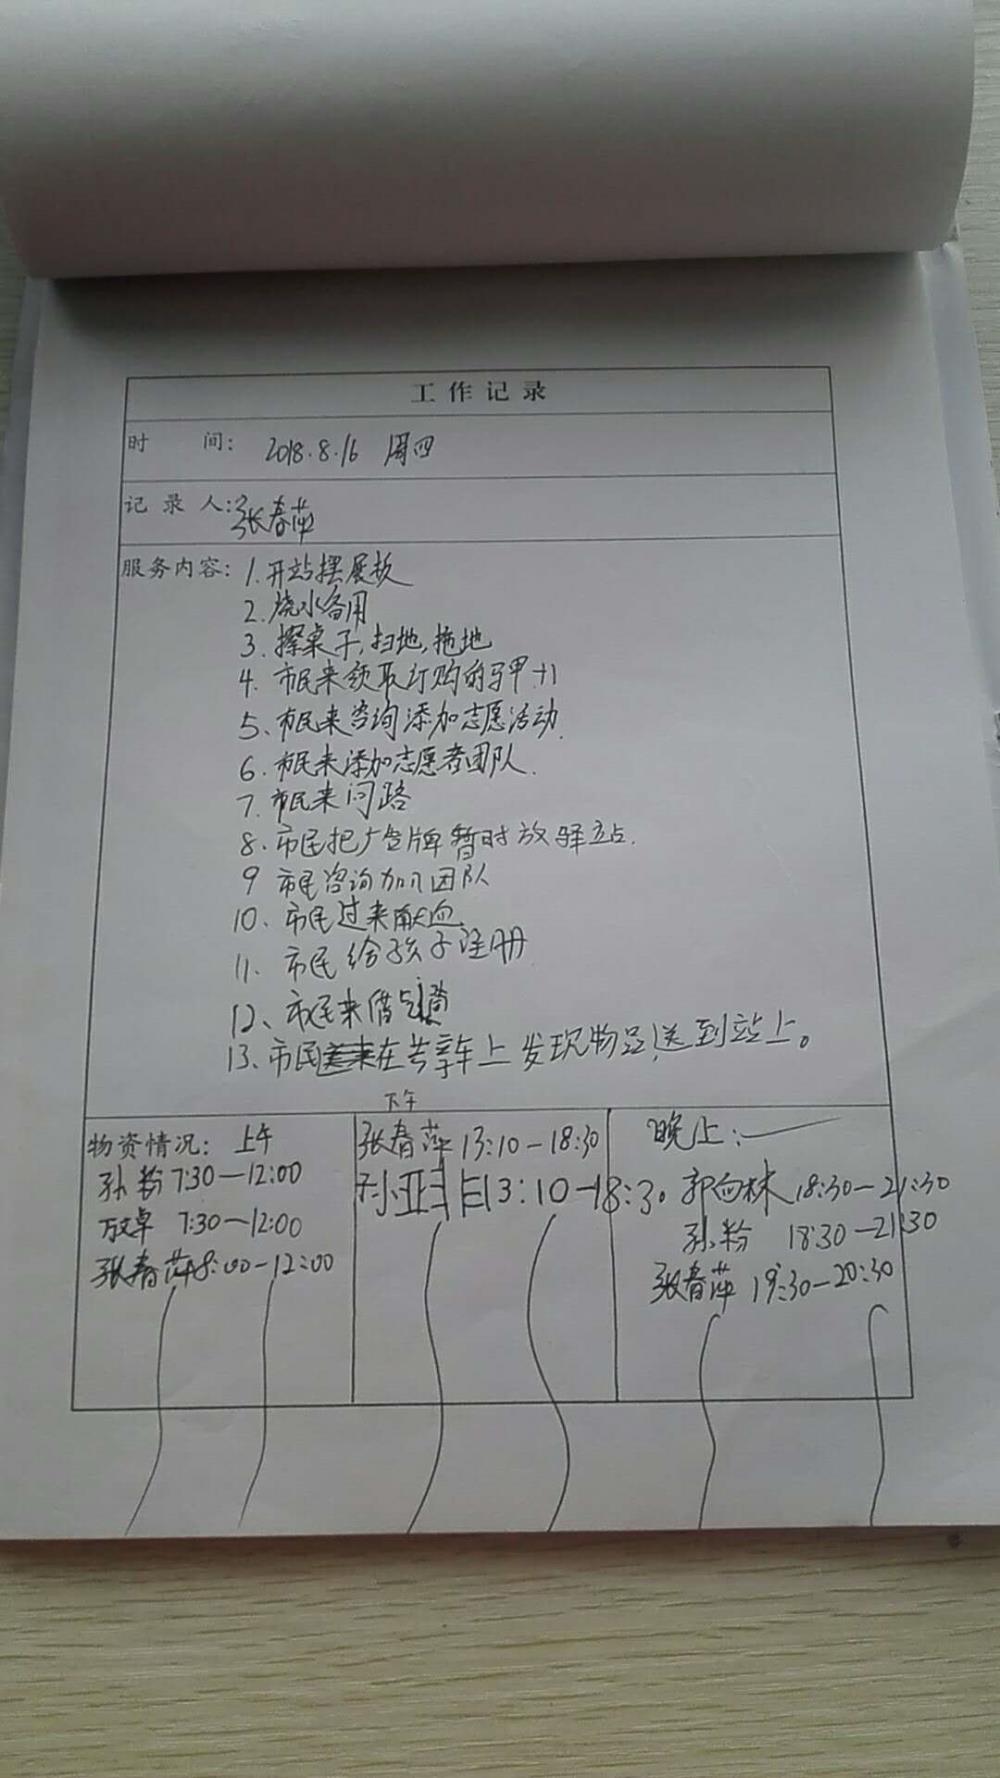 工作记录
时 间: 2018.8.16 周四
记录人: 张春萍
服务内容: 1.开站摆展板
2.烧水备用
3.擦桌子,扫地,拖地
4.市民来领取订购的马甲+1
5、市民来咨询添加志愿活动.
6.市民来添加志愿者团队.
7.市民来问路
8.市民把广告牌暂时放驿站.
9 市民咨询加入团队
10、市民过来献血
11、市民给孩子注册
12、市民来借气筒
13、市民在共享车上发现物品,送到站上。
下午
物资情况: 上午
孙粉 7:30—12:00
7:30—12:00
张春萍 8:00—12:00
张春萍 13:10—18:30
孙亚 13:10—18:30
晚上:
郭向林 18:30—21:30
孙粉 18:30—21:30
张春萍 19:30—20:30